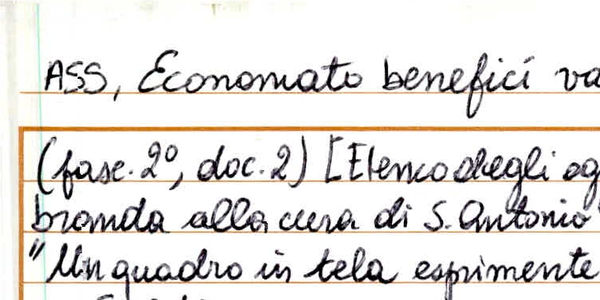 ASS, Economato benefici va
(fasc. 2°, doc. 2) [Elenco degli og
branda alla cura di S. Antonio
"Un quadro in tela esprimente